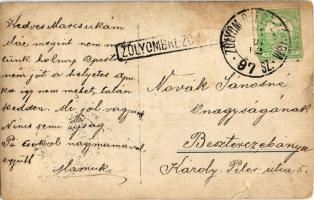 Kedves Marcsukám
Már megint nem me-
tünk holnap Beszt
nem jót a helyetes Apu-
ka így nem mehet, talán
kedden. Mi jól vagyunk
Nincs semi ujság.
nagymamával
együtt
Mamuk
ZÓLYOMBRÉZÓ
97 SZ.
Novák Jánosné
Önagyságának
Beszterczebánya
Károly Péter utca 5.